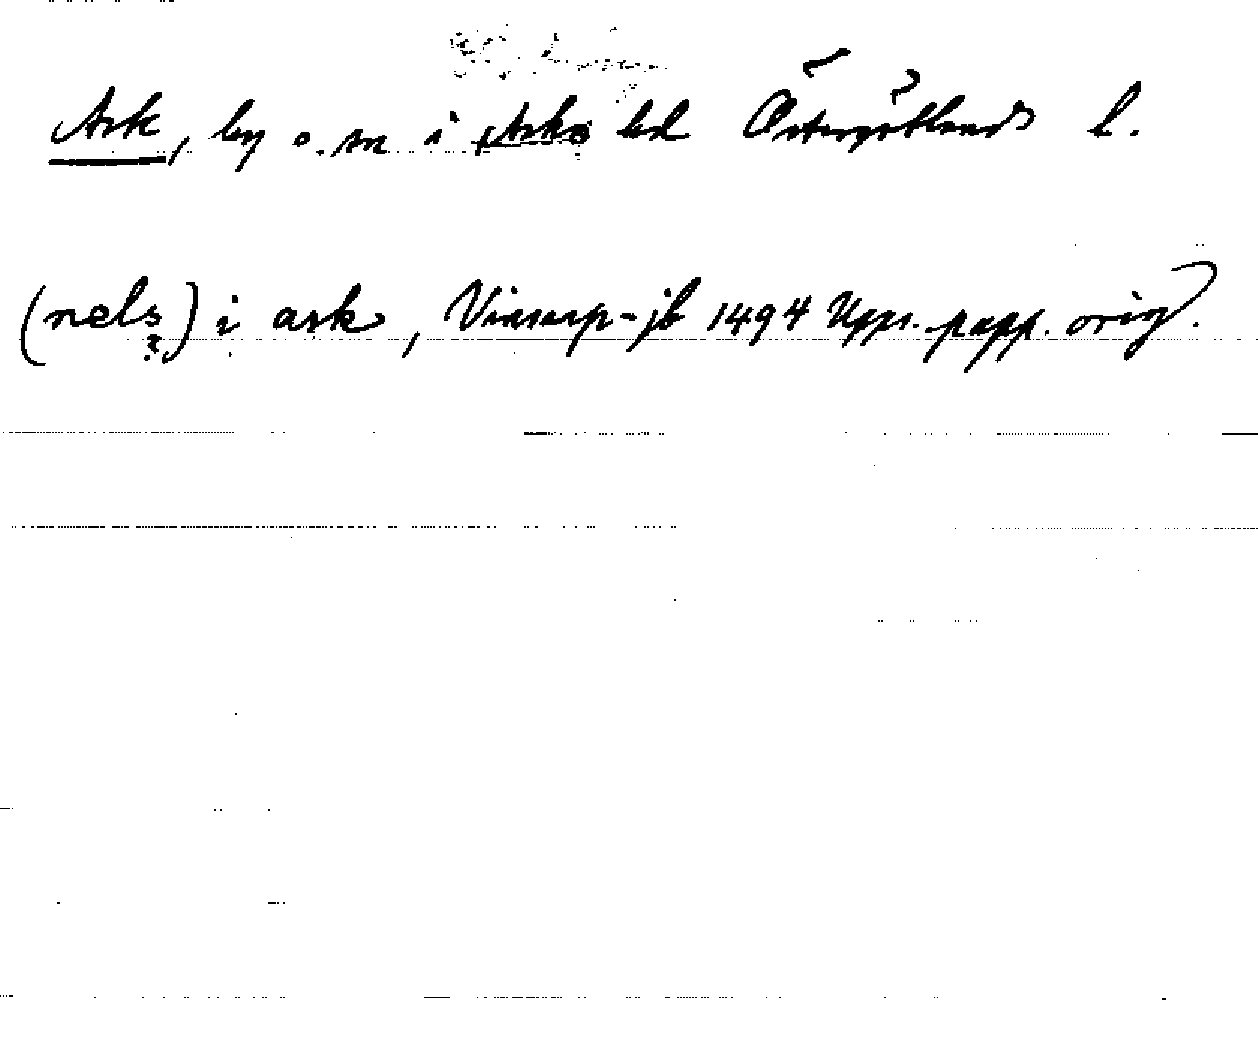 Ask, by o. sn i Aska hd Östergötlands l.
(nels) i ask, Vinsarp-jb 1494 Upps. papp. orig.